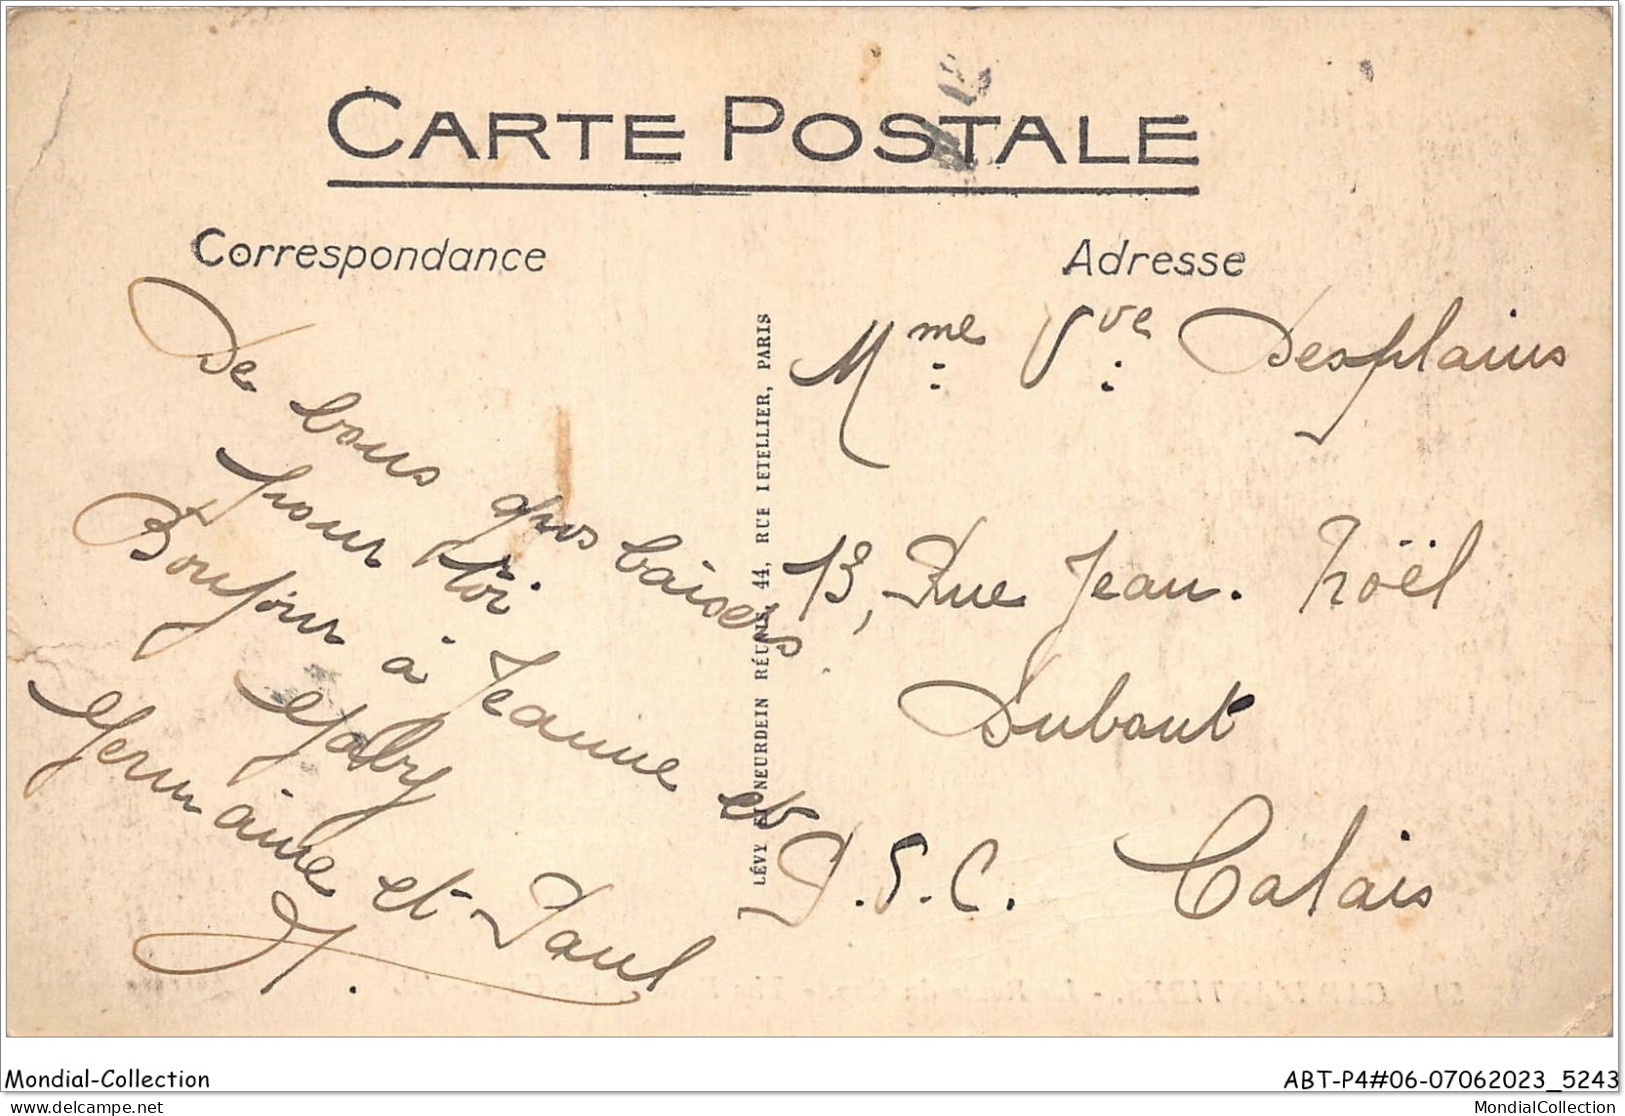 CARTE POSTALE
Correspondance
Adresse
De bons gros baisers
pour toi
Bonjour à Jeanne et
Gaby
Germaine et Paul
LÉVY ET NEURDEIN RÉUNIS, 44, RUE LETELLIER, PARIS
Mme Vve Desplains
13, Rue Jean. Noël
Dubout
P.S.C. Calais
Mondial-Collection
ABT-P4#06-07062023_5243
delcampe.net
MondialCollection